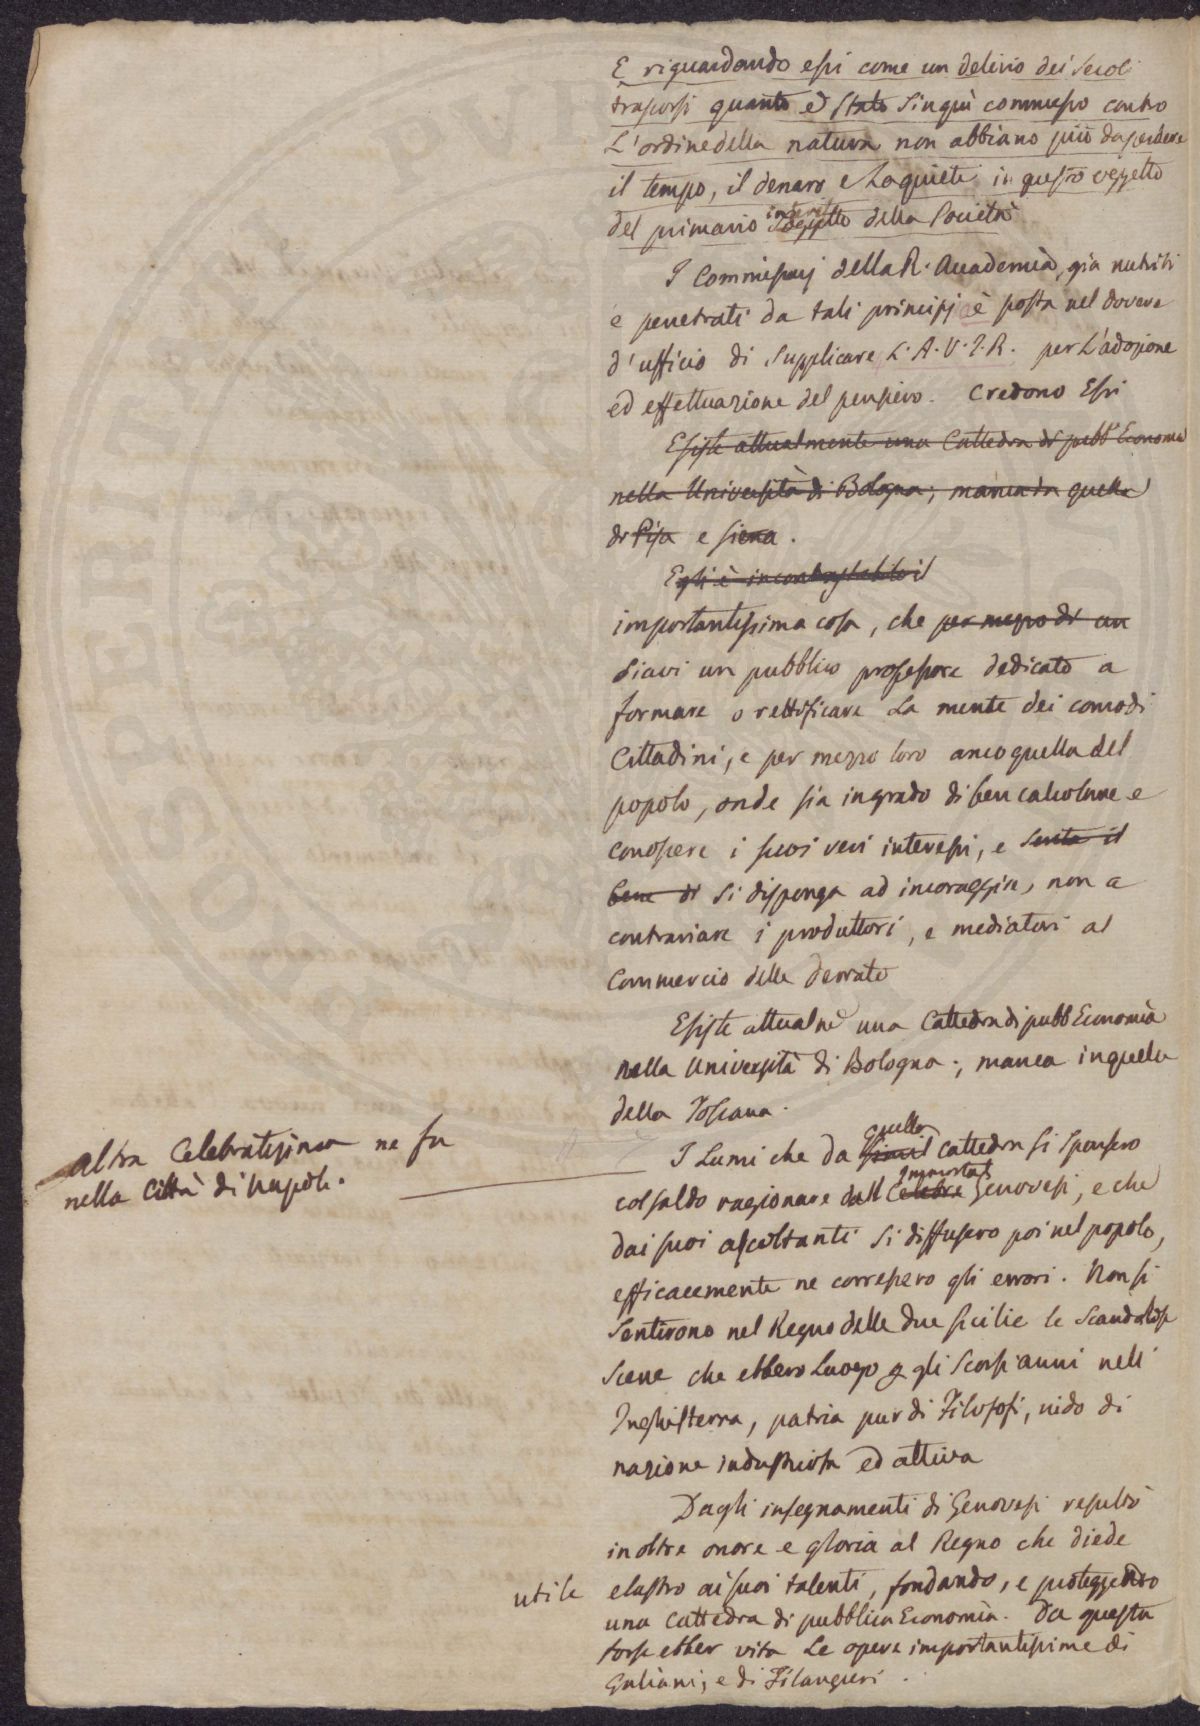 E riguardando essi come un delirio dei Secoli
trascorsi quanto è stato sinquì commesso contro
L'ordine della natura non abbiano più da perdere
il tempo, il denaro e La quiete in questo oggetto
del primario oggetto della Società
I Commissarj della R. Accademia, già nutriti
e penetrati da tali principj è posta nel dovere
d'ufficio di Supplicare L. A. V. I. R. per L'adozione
ed effettuazione del pensiero. Credono Essi
Esiste attualmente una Cattedra di pubb Economia
nella Università di Bologna; manca in quelle
di Pisa e Siena.
Egli è incontrastabile il
importantissima cosa, che per mezzo di un
siavi un pubblico professore dedicato a
formare o rettificare La mente dei comodi
Cittadini, e per mezzo loro anco quella del
popolo, onde sia in grado di ben calcolare e
conoscere i suoi veri interessi, e senta il
bene di si disponga ad incoraggire, non a
contrariare i produttori, e mediatori al
Commercio delle derrate
Esiste attualme una Cattedra di pubb Economia
nella Università di Bologna; manca in quella
della Toscana.
altra Celebratissima ne fu
nella Città di Napoli.
quella
I Lumi che da simil cattedra si sparsero
Immortal
col saldo ragionare dall Celebre Genovesi, e che
dai suoi ascoltanti si diffusero poi nel popolo,
efficacemente ne corressero gli errori. Non si
Sentirono nel Regno delle due Sicilie le Scandalose
Scene che ebbero Luogo gli Scorsi anni nell'
Inghilterra, patria pur di Filosofi, nido di
nazione industriosa ed attiva
Dagli insegnamenti di Genovesi resultò
inoltre onore e gloria al Regno che diede
utile
elastro ai suoi talenti, fondando, e proteggendo
una Cattedra di pubblica Economia. Da questa
forse ebber vita Le opere importantissime di
Galiani, e di Filangieri.